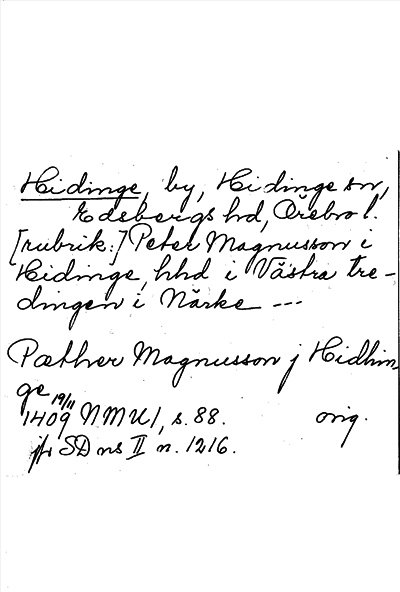 Hidinge, by, Hidinge sn,
Edsbergs hd, Örebro l.
[rubrik:] Peter Magnusson i
Hidinge, hhd i Västra tre-
dingen i Närke ---
Pæther Magnusson j Hidhin
ge
1409 19/11 NMU 1, s. 88. orig.
jfr SD ns II n. 1216.